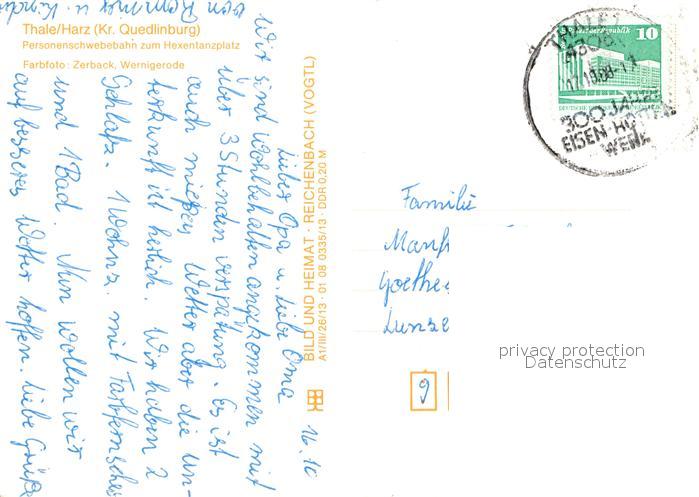 Thale/Harz (Kr. Quedlinburg)
Personenschwebebahn zum Hexentanzplatz
Farbfoto: Zerback, Wernigerode
BILD UND HEIMAT · REICHENBACH (VOGTL)
A1/III/26/13 · 01 08 0335/13 · DDR 0,20 M
16.10
Lieber Opa u. liebe Oma
Wir sind Wohlbehalten angekommen mit
über 3 Stunden verspätung. Es ist
auch mieses Wetter aber die Un-
terkunft ist herlich. Wir haben 2
Schlafz. 1 Wohnz. mit Farbfernseher
und 1 Bad. Nun wollen wir
auf besseres Wetter hoffen. Liebe Grüße
von
THALE
10
300 JAHRE
EISEN-HÜTTEN
WERK
Familie
Manf
Goethe
Lunze
9
privacy protection
Datenschutz